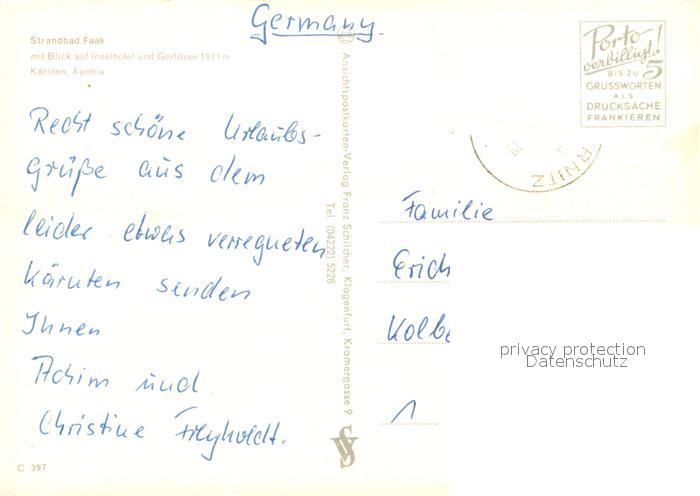 Germany.
Strandbad Faak
mit Blick auf Inselhotel und Gerlitzen 1911 m
Kärnten, Austria
Recht schöne Urlaubs-
grüße aus dem
leider etwas verregneten
Kärnten senden
Ihnen
Achim und
Christine Freyholdt.
C 397
Ansichtspostkarten-Verlag Franz Schilcher, Klagenfurt, Kramergasse 9
Tel. (04222) 5228
Porto
verbilligt!
BIS ZU 5
GRUSSWORTEN
ALS
DRUCKSACHE
FRANKIEREN
RNITZ
Familie
Erich
Kolbe
1
privacy protection
Datenschutz